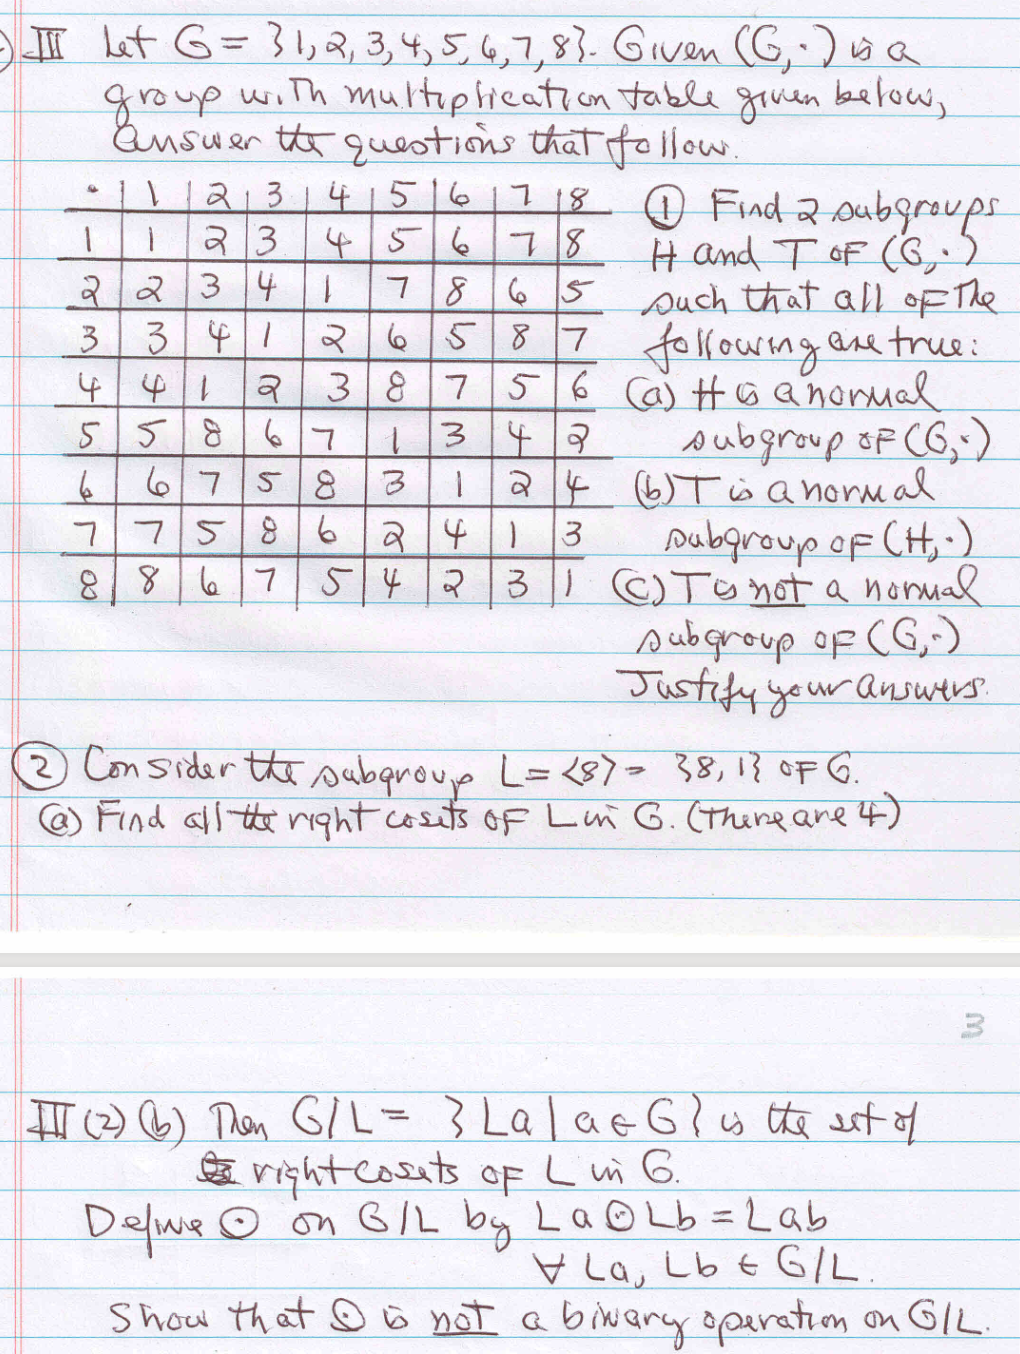 III Let G = {1, 2, 3, 4, 5, 6, 7, 8}. Given (G, ·) is a
group with multiplication table given below,
answer the questions that follow.
· 1 2 3 4 5 6 7 8
1 1 2 3 4 5 6 7 8
2 2 3 4 1 7 8 6 5
3 3 4 1 2 6 5 8 7
4 4 1 2 3 8 7 5 6
5 5 8 6 7 1 3 4 2
6 6 7 5 8 3 1 2 4
7 7 5 8 6 2 4 1 3
8 8 6 7 5 4 2 3 1
① Find 2 subgroups
H and T OF (G, ·)
such that all of the
following are true:
(a) H is a normal
subgroup OF (G, ·)
(b) T is a normal
subgroup OF (H, ·)
(c) T is not a normal
subgroup OF (G, ·)
Justify your answers.
② Consider the subgroup L = <8> = {8, 1} OF G.
(a) Find all the right cosets OF L in G. (there are 4)
3
III (2) (b) Then G/L = {La | a ∈ G} is the set of
right cosets OF L in G.
Define ⊙ on G/L by La ⊙ Lb = Lab
∀ La, Lb ∈ G/L.
Show that ⊙ is not a binary operation on G/L.